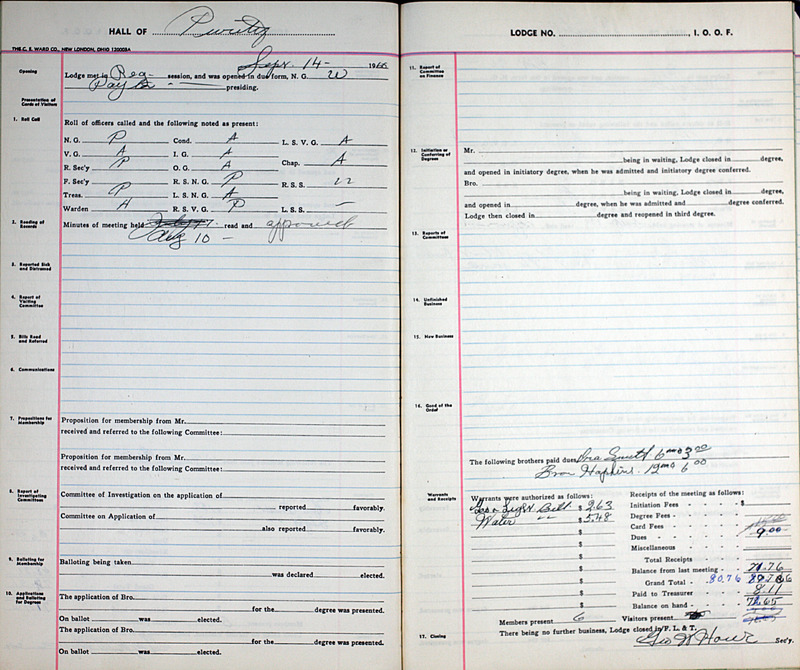 HALL OF Purity
THE C. E. WARD CO., NEW LONDON, OHIO 120008A
Sept. 14- 1966
Opening
Lodge met in Reg- session, and was opened in due form, N. G. W
presiding.
Presentation of Cards of Visitors
1. Roll Call
Roll of officers called and the following noted as present:
N. G. P Cond. A L. S. V. G. A
V. G. A I. G. A
R. Sec'y P O. G. A Chap. A
F. Sec'y R. S. N. G. P R. S. S. "
Treas. P L. S. N. G. A
Warden A R. S. V. G. P L. S. S. —
2. Reading of Records
Minutes of meeting held read and approved
Aug 10 —
3. Reported Sick and Distressed
4. Report of Visiting Committee
5. Bills Read and Referred
6. Communications
7. Propositions for Membership
Proposition for membership from Mr.
received and referred to the following Committee:
Proposition for membership from Mr.
received and referred to the following Committee:
8. Report of Investigating Committees
Committee of Investigation on the application of
reported favorably.
Committee on Application of
also reported favorably.
9. Balloting for Membership
Balloting being taken
was declared elected.
10. Applications and Balloting for Degrees
The application of Bro.
for the degree was presented.
On ballot was elected.
The application of Bro.
for the degree was presented.
On ballot was elected.
LODGE NO. , I. O. O. F.
11. Report of Committee on Finance
12. Initiation or Conferring of Degrees
Mr.
being in waiting, Lodge closed in degree,
and opened in initiatory degree, when he was admitted and initiatory degree conferred.
Bro.
being in waiting, Lodge closed in degree,
and opened in degree, when he was admitted and degree conferred.
Lodge then closed in degree and reopened in third degree.
13. Reports of Committees
14. Unfinished Business
15. New Business
16. Good of the Order
The following brothers paid dues Smith 6 mo 3.00
Bro Hopkins 12 mo 6.00
Warrants and Receipts
Warrants were authorized as follows:
Gas & Light Bill $ 2.63
Water " $ 5.48
$
$
$
$
$
$
$
Receipts of the meeting as follows:
Initiation Fees - - - $
Degree Fees - - -
Card Fees - - -
Dues - - - 9.00
Miscellaneous - - -
Total Receipts
Balance from last meeting - 71.76
Grand Total - 80.76
Paid to Treasurer - 8.11
Balance on hand - 72.65
Members present 6 Visitors present
17. Closing
There being no further business, Lodge closed in F. L. & T.
Geo W Sec'y.